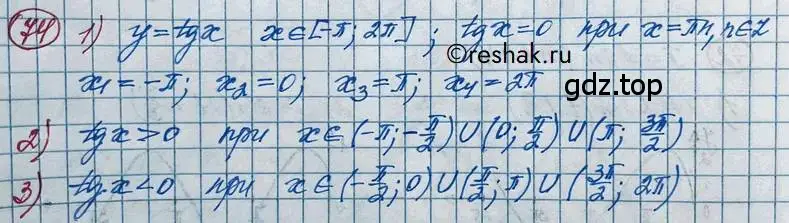 74 1) y=tgx x∈[-π; 2π]; tgx=0 при x=πn, n∈Z
©reshak.ru
x₁=-π; x₂=0; x₃=π; x₄=2π
gdz.top
2) tgx>0 при x∈(-π;-π/2)∪(0;π/2)∪(π; 3π/2)
3) tgx<0 при x∈(-π/2;0)∪(π/2;π)∪(3π/2; 2π)